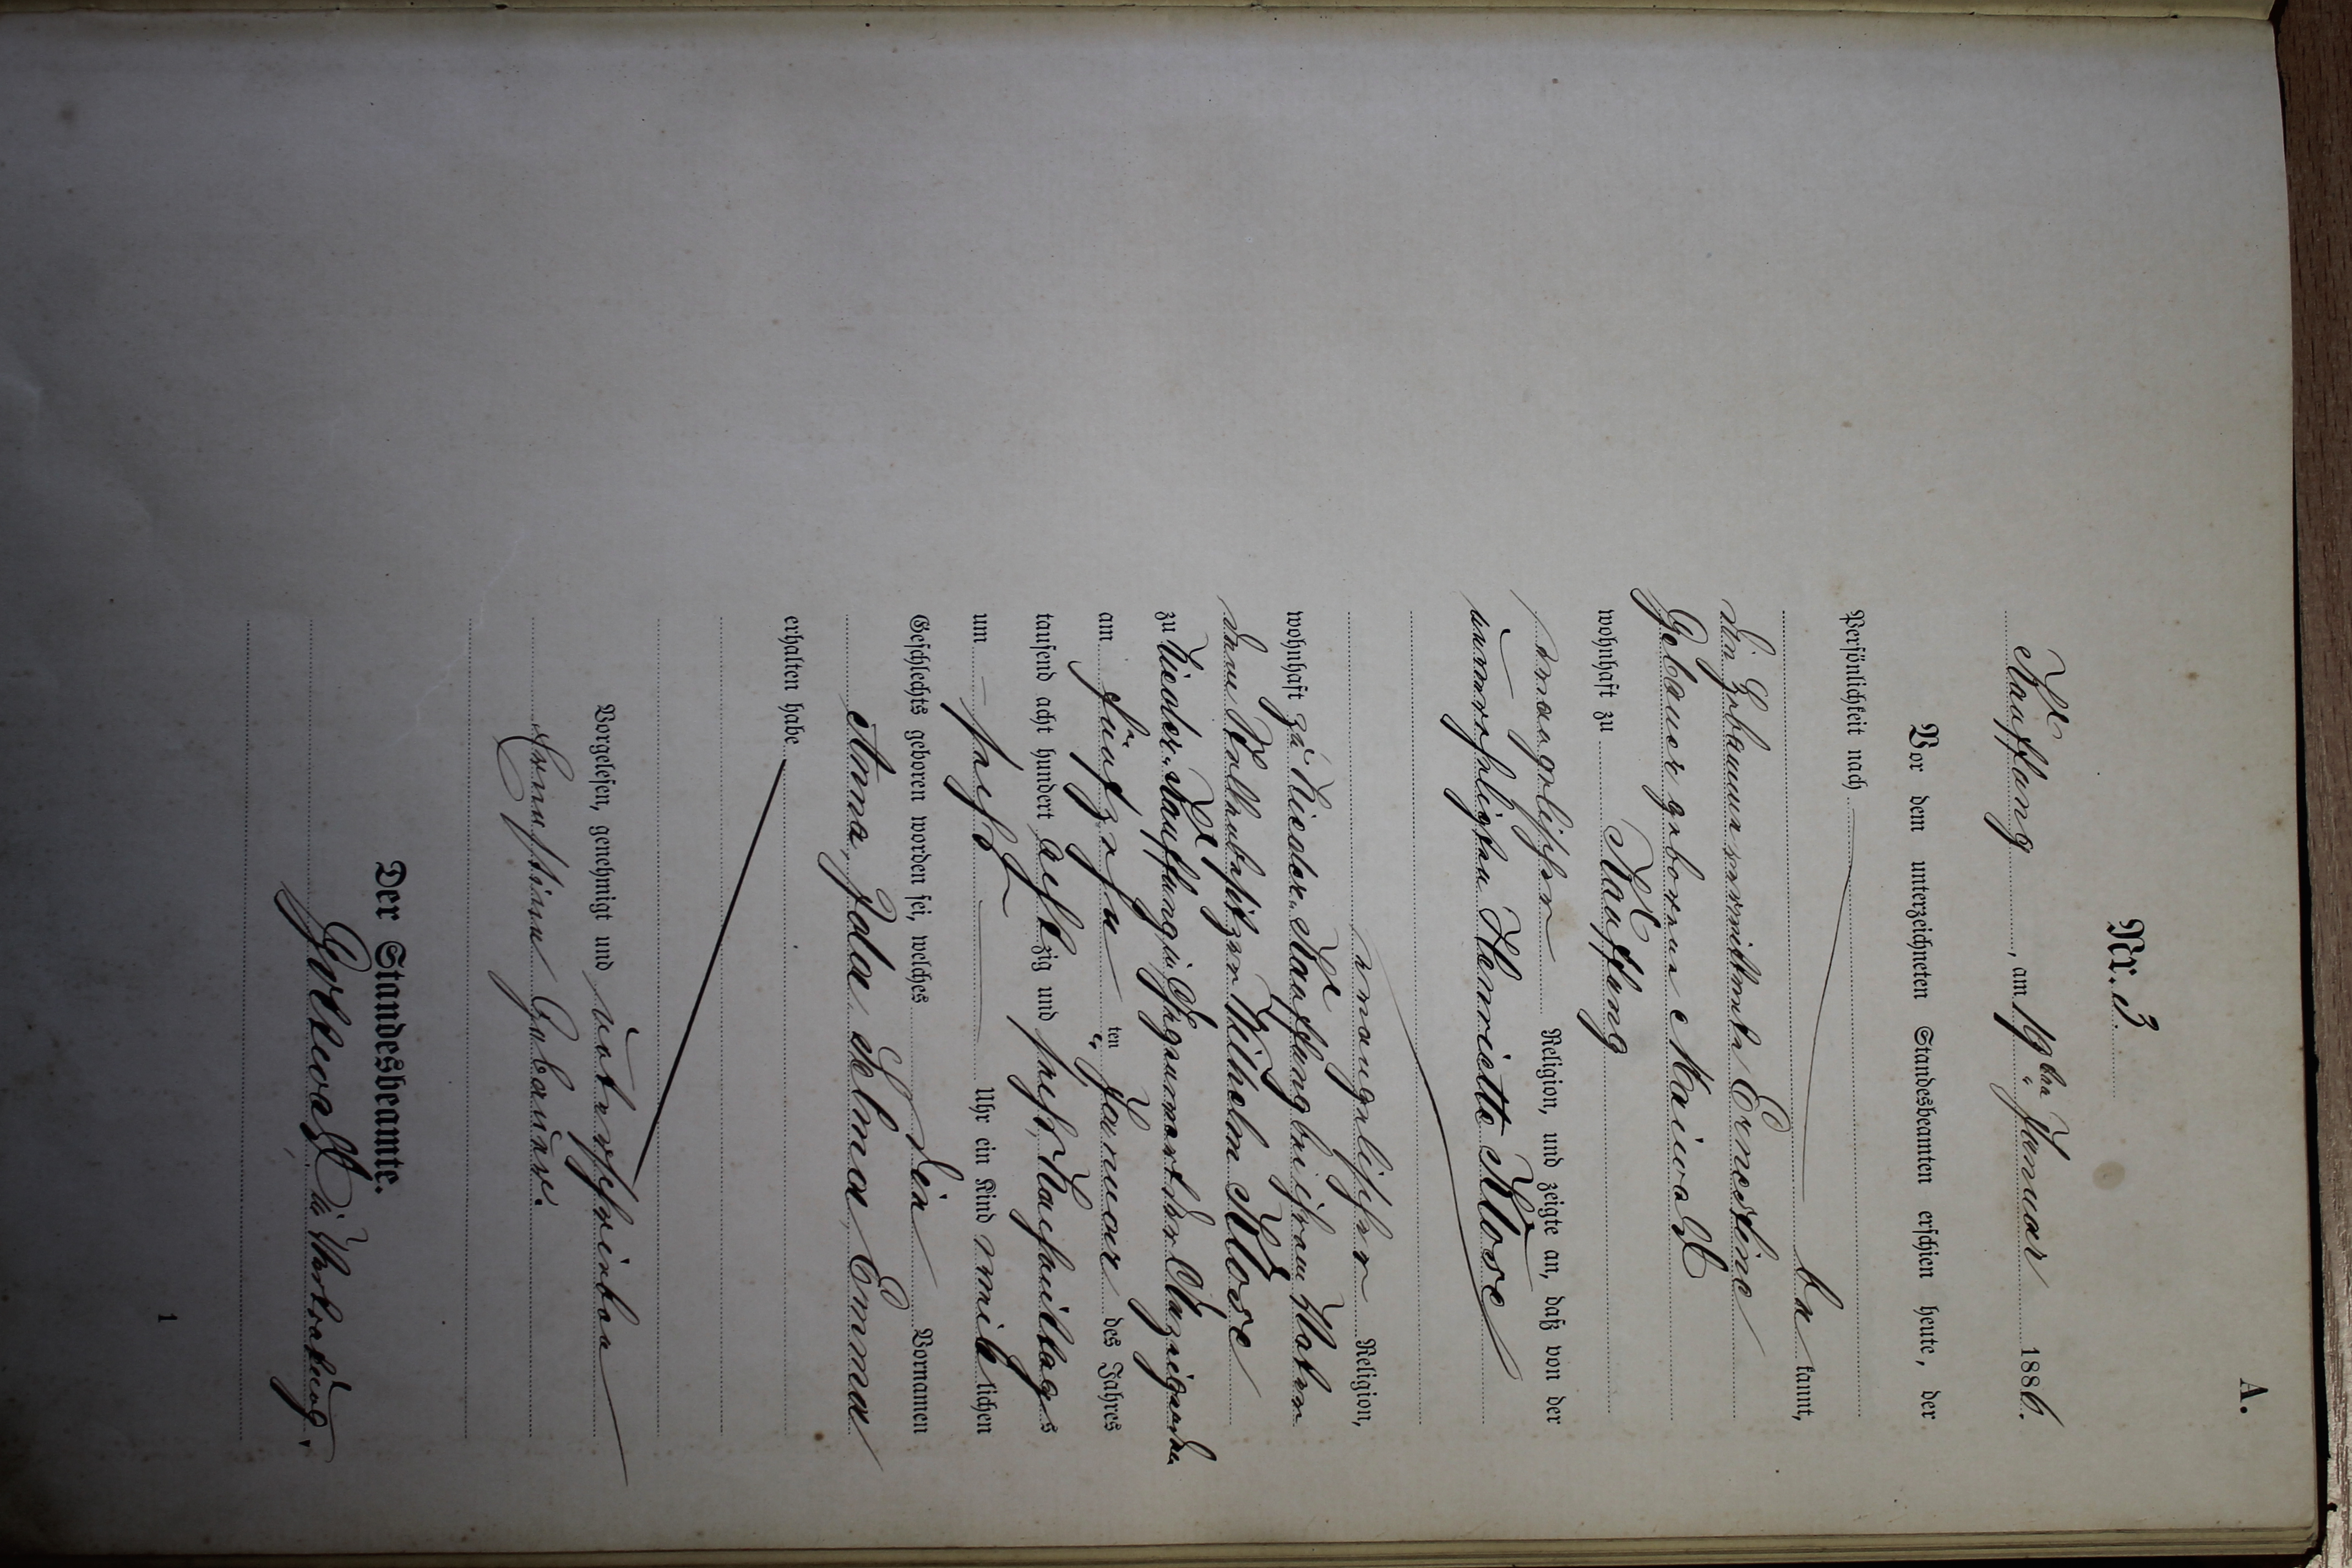 A.
Nr. 3.
Kauffung, am 19ten Januar 1886.
Vor dem unterzeichneten Standesbeamten erschien heute, der
Persönlichkeit nach
bekannt,
die Hebamme verwittwete Ernestine
Gebauer geborene Maiwald
wohnhaft zu Kauffung
evangelischer Religion, und zeigte an, daß von der
unverehelichten Henriette Klose
evangelischer Religion,
wohnhaft zu Nieder-Kauffung bei ihrem Vater
dem Wilhelm Klose
zu Nieder-Kauffung in Gegenwart der Anzeigenden
am fünfzehnten Januar des Jahres
tausend acht hundert achtzig und sechs, Nachmittags
um sechs Uhr ein Kind weiblichen
Geschlechts geboren worden sei, welches die Vornamen
Anna, Ida Selma, Emma
erhalten habe.
Vorgelesen, genehmigt und unterschrieben
Ernestine Gebauer.
Der Standesbeamte.
in Vertretung.
1